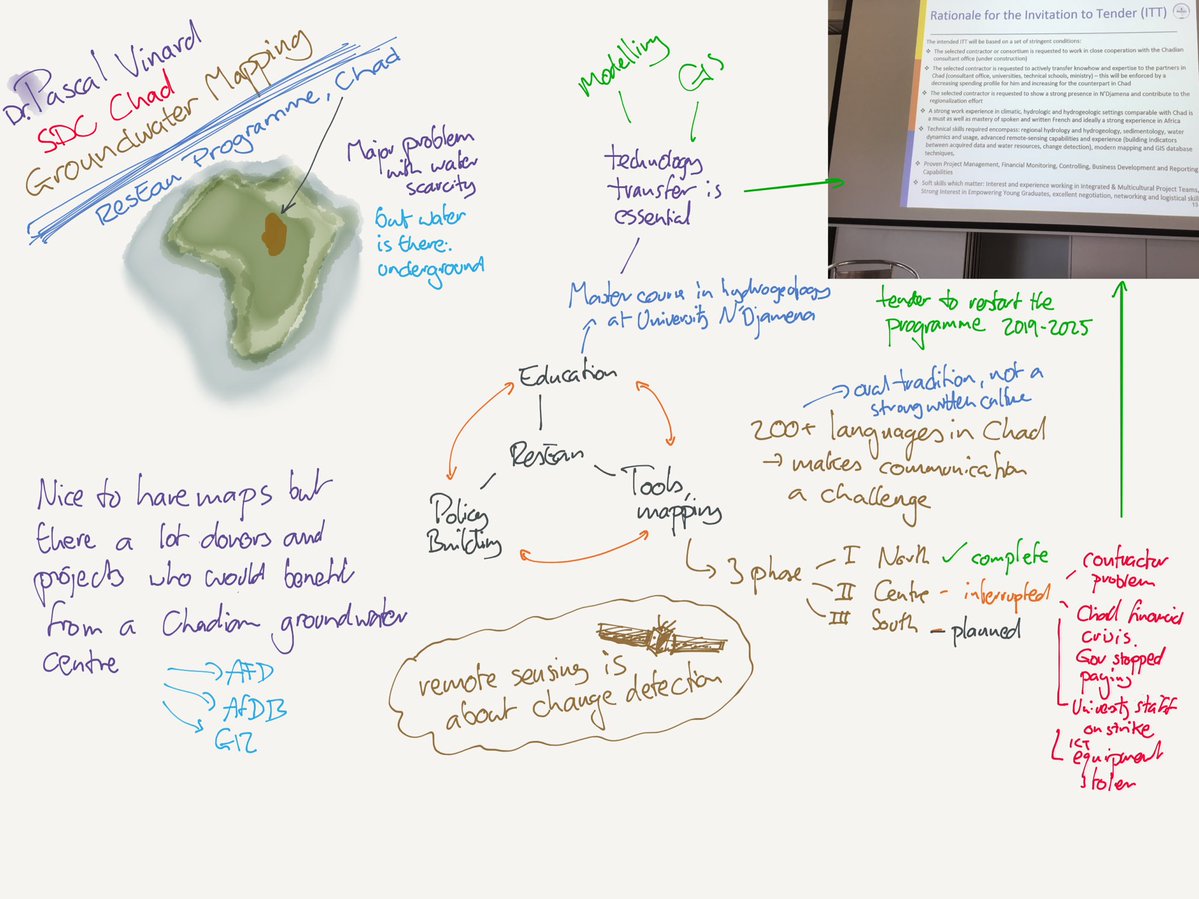 Dr. Pascal Vinard
SDC Chad
Groundwater Mapping
ResEau Programme, Chad
Major problem
with water
scarcity
but water
is there:
underground
modelling
GIS
technology
transfer is
essential
Master course in hydrogeology
at University N'Djamena
Rationale for the Invitation to Tender (ITT)
The intended ITT will be based on a set of stringent conditions:
The selected contractor or consortium is requested to work in close cooperation with the Chadian
consultant office (under construction)
The selected contractor is requested to actively transfer knowhow and expertise to the partners in
Chad (consultant office, universities, technical schools, ministry) – this will be enforced by a
decreasing spending profile for him and increasing for the counterpart in Chad
The selected contractor is requested to show a strong presence in N'Djamena and contribute to the
regionalization effort
A strong work experience in climatic, hydrologic and hydrogeologic settings comparable with Chad is
a must as well as mastery of spoken and written French and ideally a strong experience in Africa
Technical skills required encompass: regional hydrology and hydrogeology, sedimentology, water
dynamics and usage, advanced remote-sensing capabilities and experience (building indicators
between acquired data and water resources, change detection), modern mapping and GIS database
techniques,
Proven Project Management, Financial Monitoring, Controlling, Business Development and Reporting
Capabilities
Soft skills which matter: Interest and experience working in Integrated & Multicultural Project Teams,
Strong Interest in Empowering Young Graduates, excellent negotiation, networking and logistical skill
tender to restart the
programme 2019-2025
Education
ResEau
Policy
Building
Tools,
mapping
oral tradition, not a
strong written culture
200+ languages in Chad
→ makes communication
a challenge
3 phase
I North ✓ complete
II Centre - interrupted
III South - planned
contractor
problem
Chad financial
crisis.
Gov stopped
paying
University staff
on strike
ICT
equipment
stolen
Nice to have maps but
there a lot donors and
projects who would benefit
from a Chadian groundwater
centre
AFD
AfDB
GIZ
remote sensing is
about change detection